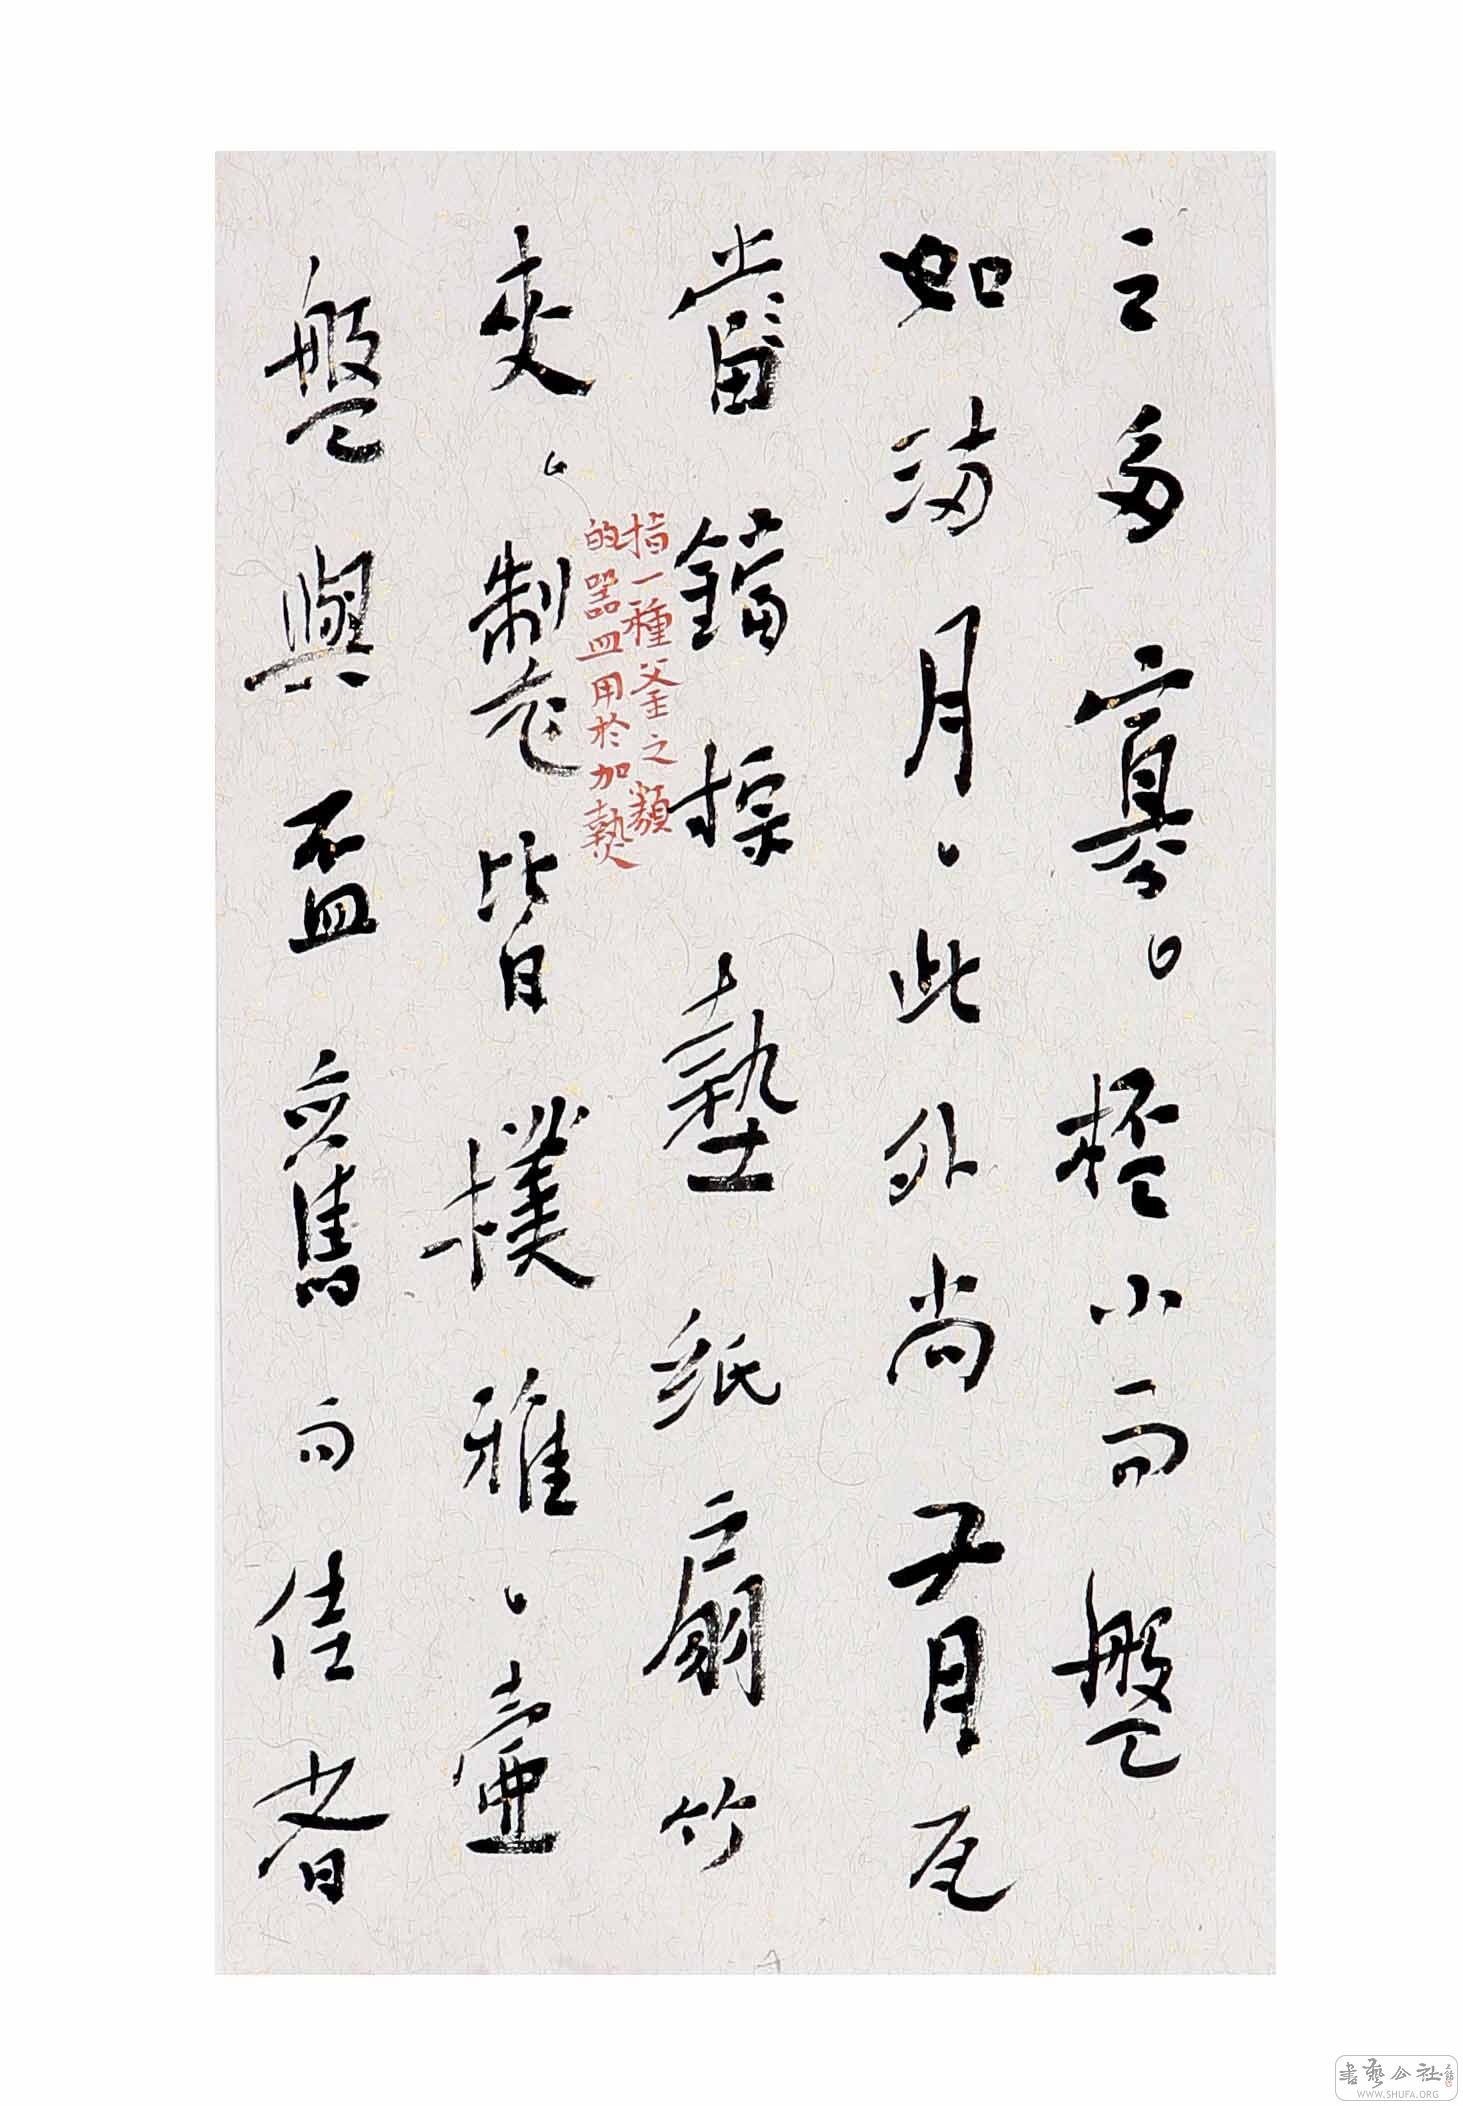 之多寡。桮小而盤
如满月。此外尚有瓦
當鐺棕墊紙扇竹
夾。製皆樸雅。壺
盤與盃舊而佳者
指一種釜之類
的器皿用於加熱
書藝公社
WWW.SHUFA.ORG